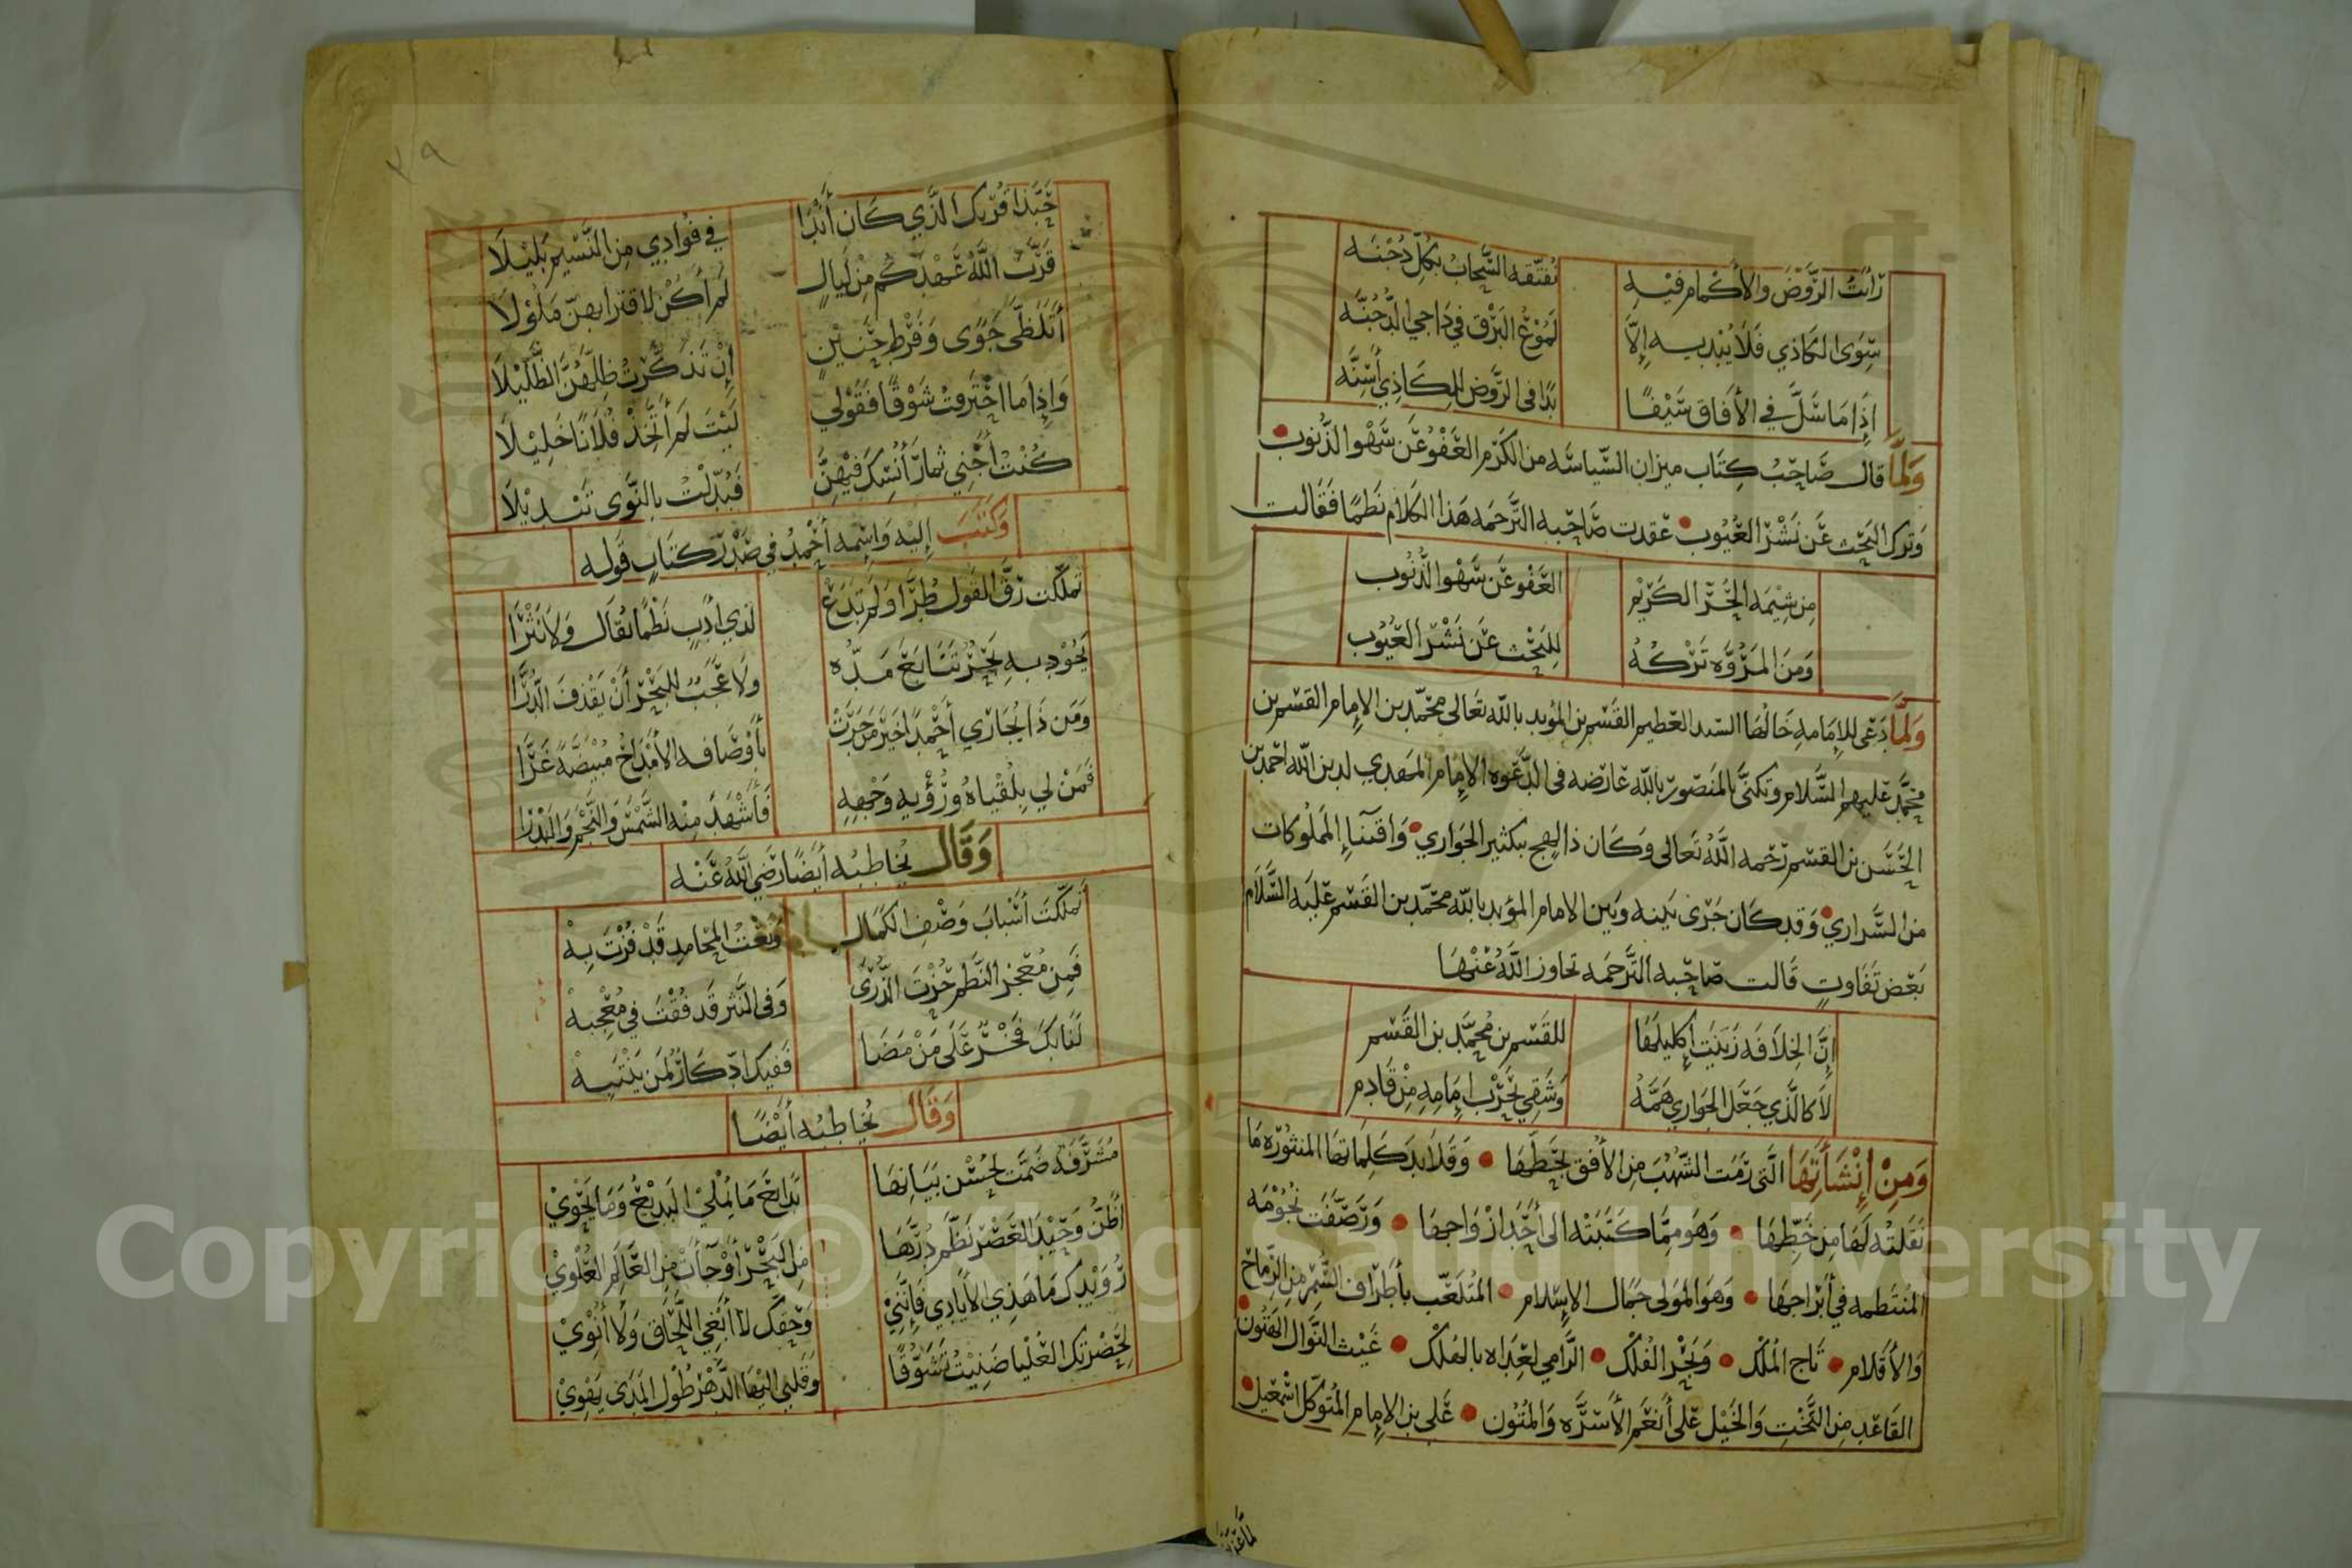 رَأيتُ الرَّوْضَ والأكمام فيه تفتّقه السَّحابُ بكلّ دُجْنَه
سِوَى الكاذي فلا يُبْديه إلّا لمُوْعُ البَرْقِ في دَاجي الدُّجُنّه
إذا ما سَلَّ في الأفاق سَيْفًا بدا في الرَّوض للكاذي أسِنَّه
وَلَمَّا قال صَاحِبُ كتاب ميزان السّياسَه من الكرم العَفْوُ عَن سَهْو الذُّنوب
وَترك البَحْث عَن نَشْر العُيُوب عقدت صَاحِبه التَّرجمه هذا الكلام نَظمًا فقالت
مِن شِيْمَه الحُرّ الكَرِيْمِ العَفْو عَن سَهْو الذُّنُوب
وَمِنَ المَرُوَّه تَرْكُهُ لِلبَحْث عَن نَشْر العُيُوب
وَلَمَّا دَعَى للإمامه خالُهَا السّيد العظيم القسم بن المؤيد بالله تعالى محمّد بن الإمام القسم بن
محمّد عليهم السَّلام وتكنَّى بالمنصور بالله عارضه في الدّعوه الإمام المهدي لدين الله احمد بن
الحَسَن بن القسم رحمه اللّه تعالى وكان ذا لهج بتكثير الجواري واقتناء المملوكات
من السَّراري وقد كان جرى بينه وبين الامام المؤيد بالله محمّد بن القسم عليه السَّلام
بَعْض تفاوتٍ قالت صاحبه التَّرجمه تجاوز اللّه عنها
إنَّ الخِلَافَه زَيَّنَت إكليلهَا للقسم بن محمّد بن القسم
لا كالّذي جعل الجواري همَّهُ وَشَقِي بحَرْب إمَامِهِ مِن قادم
وَمِنْ إنْشَآتِهَا الَّتي رَمَت الشُّهُبَ مِن الأفق بخَطِّهَا وَقلايد كلماتها المنثوره مَا
نقلته لها مِن خَطِّهَا وَهو ممّا كتبته الى أحَد أزْوَاجها وَرَصَّفَت نُجُوْمَه
المنتظمه في أبْرَاجها وَهو المولى جمال الإسلام المُتلعّب بأطراف السُّمْر مِن الرِّمَاح
وَالأقلام تاج المُلْك وَبَحْر الفُلْك الرَّامي لعِدَاه بالهُلْك غَيْث النَّوال الهتُون
القاعد مِن التَّخْتِ وَالخَيْل على أنعَم الأسِرَّه وَالمُتُون عَلي بن الإمام المُتوكّل اسمعيل
٧٩
حَبَّذا قُرْبك الَّذي كان أنْدَا في فؤادي مِن النَّسيم بَليْلَا
قَرَّب اللَّهُ عَهْدَكُم مِنْ لَيَالٍ لَم أكُنْ لاقترابهنّ مَلُوْلَا
أتَلَظَّى جَوًى وَفَرْط حَنينٍ إنْ تَذكَّرْتُ ظِلَّهُنَّ الظَّلِيْلَا
وَإذا مَا احْتَرقتُ شَوْقًا فقَوْلي لَيْتَ لَم أتَّخِذْ فُلَانًا خَلِيْلَا
كُنْتُ أجْنِي ثمار أنْسِكَ فيْهِنَّ فَبُدِّلْتُ بالنَّوى تَبْديْلَا
وَكَتَبَ إليه وَاسمه أحْمدُ في صَدْر كتابٍ قوله
تملّكت رِقَّ القول طُرًّا وَلم تَدَعْ لذي ادَبٍ نَظْمًا يُقَال وَلا نَثْرًا
يَجُوْد به بَحْرٌ تَتَابَعَ مَدُّه ولا عَجَبٌ للبَحْر أنْ يَقْذِفَ الدُّرَّا
وَمَن ذا يُجَاري أحْمدًا خَيْر مَن جَرَتْ بأوْصَافه الأمْدَاحُ مُبْيَضَّةً غَرَّا
فَمَنْ لي بِلُقْيَاهُ وَرُؤْيه وَجْههِ فأشْهَدَ مِنْه الشَّمْسَ وَالنَّجْمَ وَالبَدْرَا
وَقَال يُخاطبُه أيْضًا رَضي اللَّهُ عَنْه
تملّكتَ أسْبابَ وَصْفِ الكمال وَنَعْتُ المحامد قَدْ فُزْتَ بهْ
فمِن مُعْجز النَّظم حُزْتَ الذُّرى وَفي النَّثْر قَد فُقْتَ في مُعْجبهْ
لنا بكَ فَخْرٌ عَلَى مَنْ مَضَا ففيك ادِّكارٌ لمَن يَنْتَبِهْ
وَقَال يُخاطبُه أيْضًا
مُشَرَّفَه ضَمَّت لحُسْن بَيَانهَا بَدَايعَ مَا يُمْلي البَدِيْعُ وَمَا يَحْوِيْ
أظُنُّ وَحِيْدَ العَصْر نَظَّم دُرَّهَا مِن البَحْر أوْ جَآت مِن العَالَم العُلْوِيْ
رُوَيْدَك مَا هَذِي الأيَادي فإنَّنيْ وَحقّك لا أبْغِي اللَّحَاق وَلا أنْوِيْ
لحَضْرتك العُلْيَا ضَنِيْتُ تَشَوُّقًا وَقلبي اليْهَا الدَّهْرَ طُوْل المَدَى يَهْوِيْ